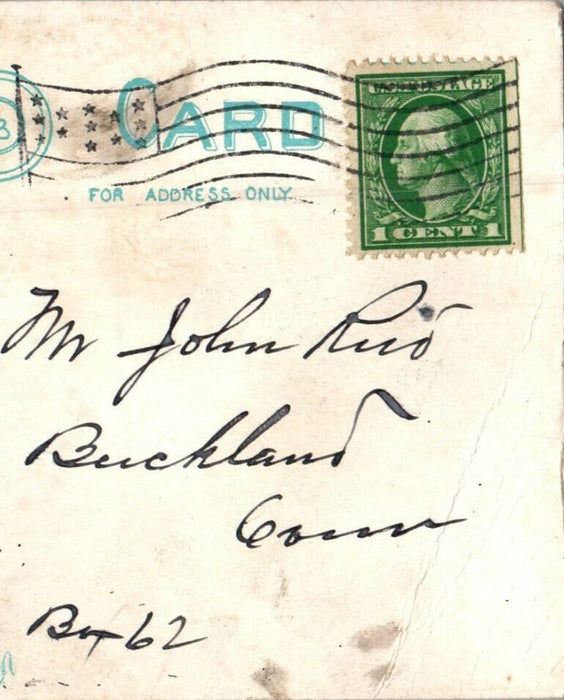 CARD
FOR ADDRESS ONLY
U.S. POSTAGE
1 CENT 1
Mr John
Buckland
Conn
Box 62